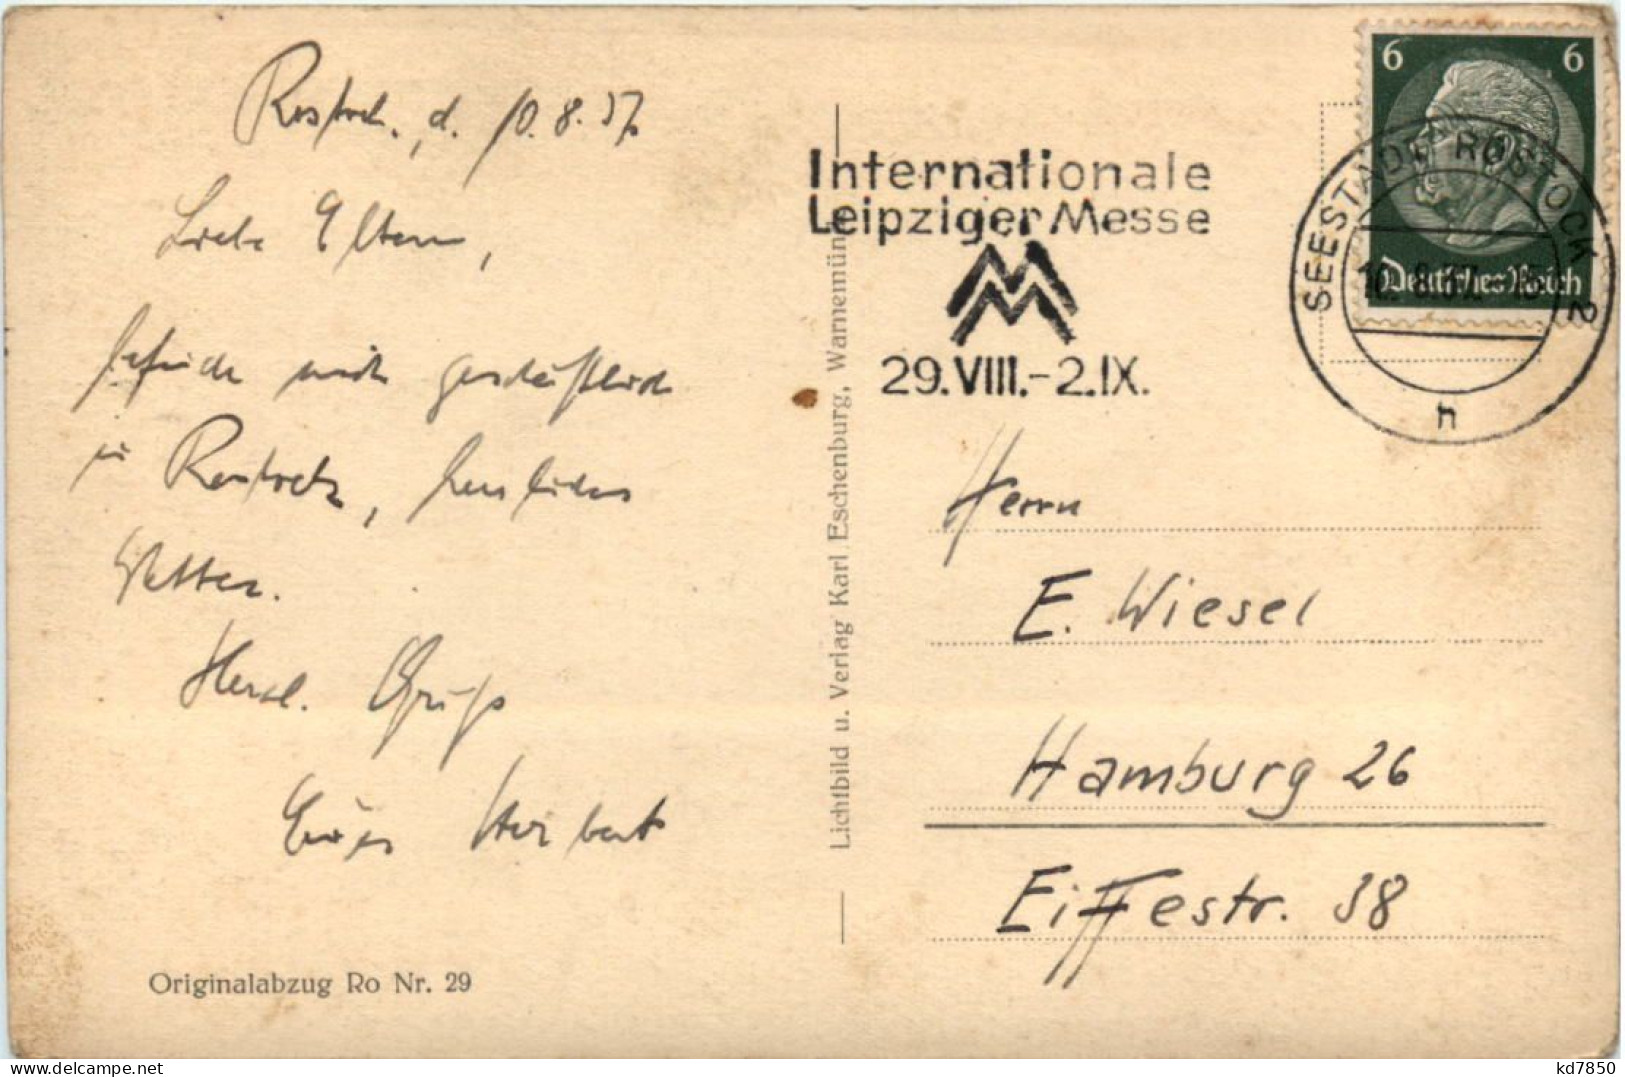 Rostock, d. 10.8.37.
Liebe Eltern,
befinde mich geschäftlich
in Rostock, herrliches
Wetter.
Herzl. Gruß
Euer Herbert
Originalabzug Ro Nr. 29
Lichtbild u. Verlag Karl Eschenburg, Warnemünde
Internationale
Leipziger Messe
MM
29.VIII.-2.IX.
6 6
Deutsches Reich
SEESTADT ROSTOCK 2
n
Herrn
E. Wiesel
Hamburg 26
Eiffestr. 38
delcampe.net
kd7850